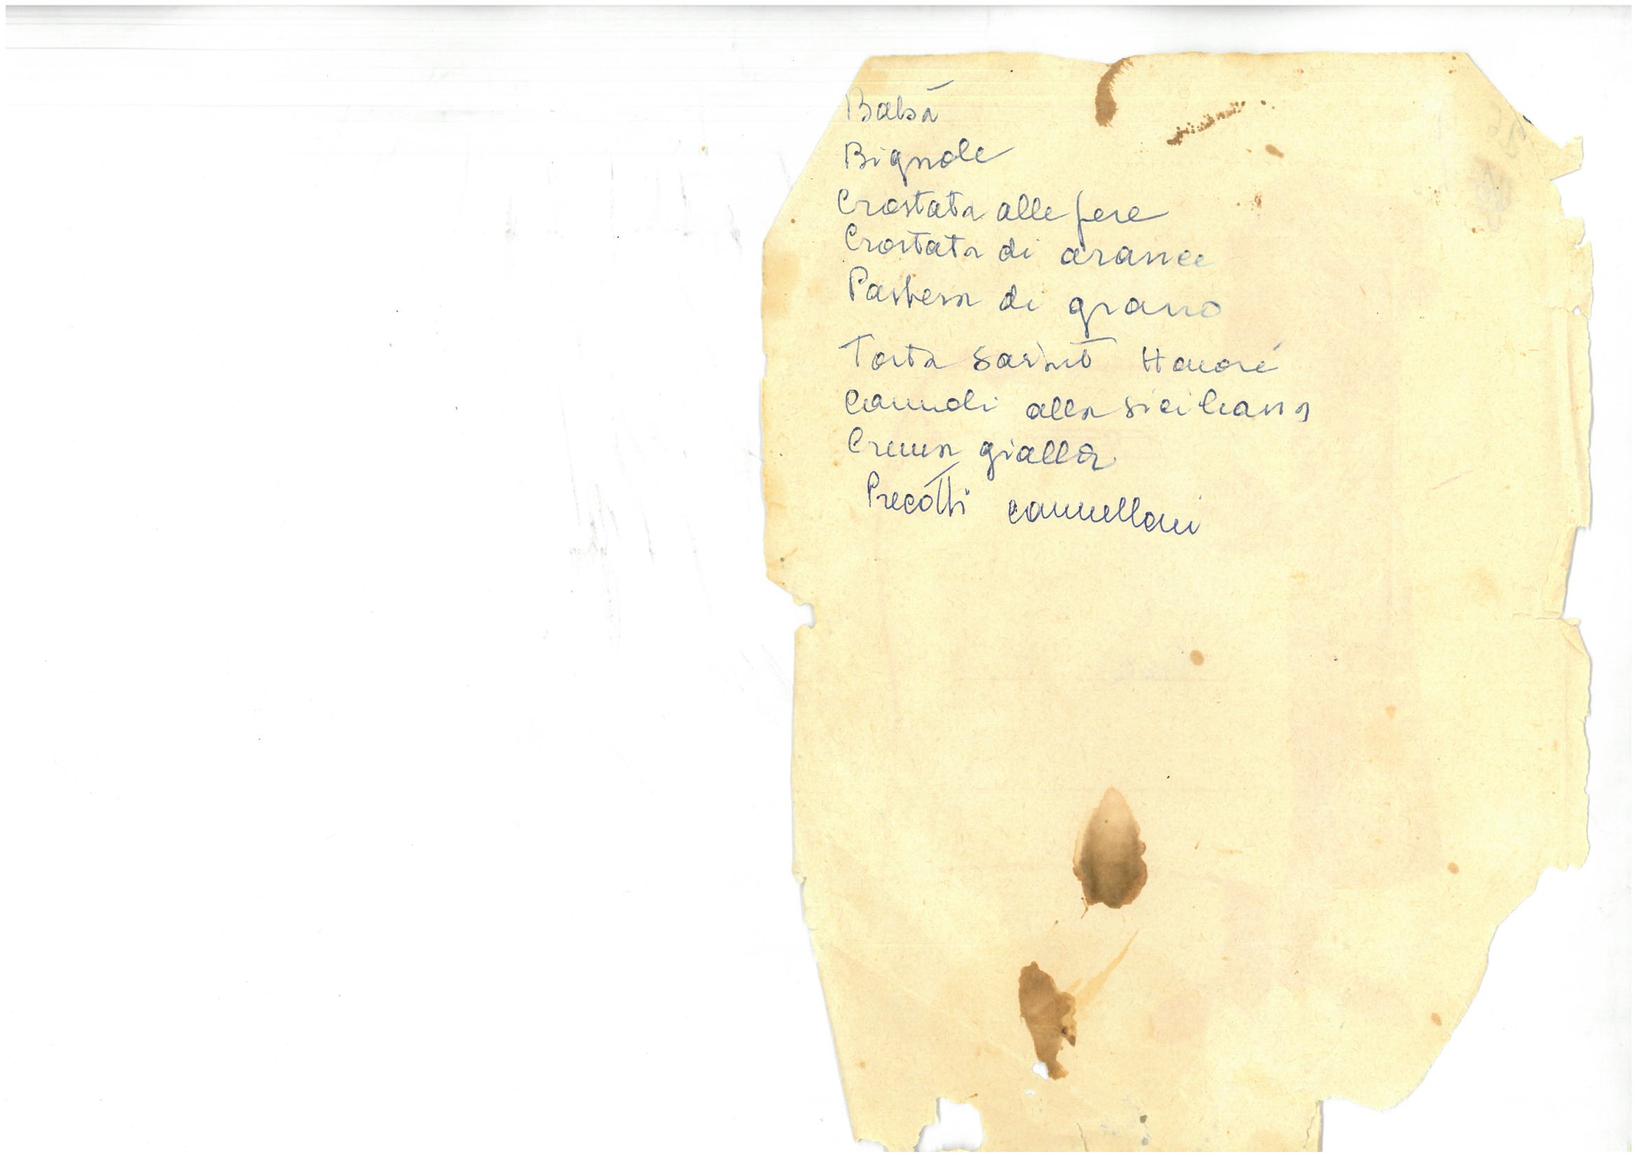 Babà
Bignole
Crostata alle pere
Crostata di arance
Pastiera di grano
Torta Saint Honoré
Cannoli alla siciliana
Crema gialla
Precotti cannelloni